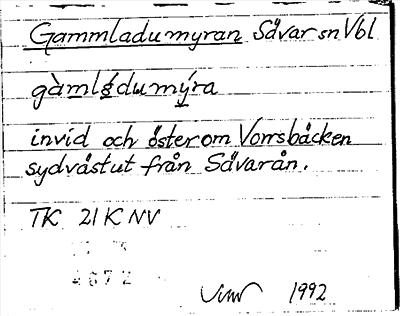 Gammladumyran Sävar sn Vbl
gàmlǝ́dumýra
invid och öster om Vorrsbäcken
sydvästut från Sävarån.
TK 21K NV
4672
1992